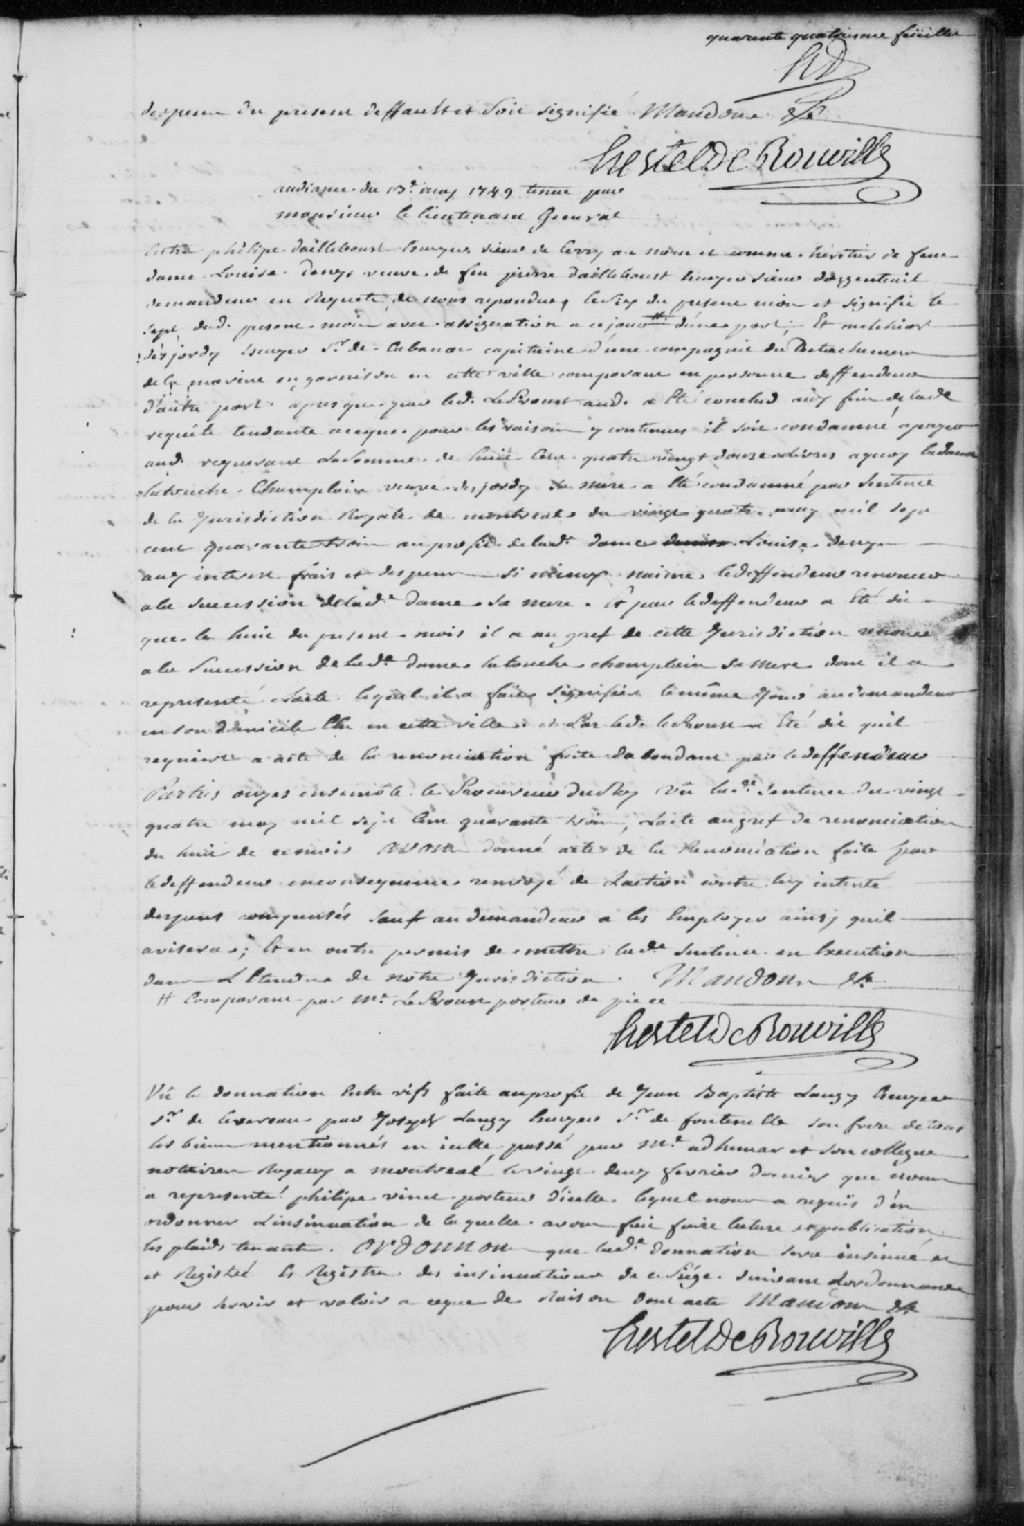 quarente quatriesme feüille
hD
despens du present deffault et Soit signifié Mandons &c
hertel De Rouville
audiance du 13e. may 1749 tenue par
monsieur le lieutenant General
Entre philipe dailleboust Ecuyer sieur de Cerry au nom et comme heritier de feue
dame Louise Denys veuve de feu pierre dailleboust Ecuyer sieur dargenteuil
demandeur en Requete de nous repondue, le six du present mois et signifié le
sept dud. present mois avec assignation a ce jour # d'une part; Et melchior
desjordy Ecuyer Sr. de Cabanac capitaine d'une compagnie du Detachement
de la marine en garnison en cette ville comparant en personne deffendeur
d'autre part. apres que par led. LeProust aud. a Eté conclud aux fins de lade.
requête tendante a ceque pour les raisons y contenues il soit condamné a payer
aud. requerant La Somme de huit Cent quatre vingt douze Livres a quoy la dame
Latouche Champlain veuve desjordy Sa mere a Eté condamné par Sentence
de la Jurisdiction Royale de montreal du vingt quatre may mil sept
cent quarante trois au profit de lade. dame Louise denys
aux interest frais et despens Si mieux naime le deffendeur renoncer
a la succession de lade. dame Sa mere. Et par le deffendeur a Eté dit
que le huit du present mois il a au gref de cette Jurisdiction renoncé
a la Succession de lade. dame latouche champlain Sa mere dont il a
representé Lacte lequel il a fait signifier le même Jour au demandeur
en son domicile Elu en cette ville et Par led. leProust a Eté dit quil
requiert acte de la renonciation faite par le deffendeur
Parties ouyes ensemble le Procureur Du Roy vû lade. Sentence du vingt
quatre may mil sept Cent quarante trois, Lacte au gref de renonciation
du huit de ce mois avons donné acte de la Renonciation faite par
le deffendeur en consequence renvoyé de Laction contre luy intenté
despens compensés Sauf au demandeur a les Employer ainsy quil
avisera; Et en outre permis de mettre lade. Sentence en Execution
dans L'Etendue de nôtre Jurisdiction. Mandons &c
# Comparant par Me. LeProust porteur de piece
hertel De Rouville
Vû la donnation Entre vifs faite au profit de Jean Baptiste Ecuyer
Sr. de par Joseph Ecuyer Sr. de fontenelle son frere de tous
les biens mentionnés en icelle, passé par Me. adhemar et son collegue
notaires Royaux a montreal le vingt deux fevrier dernier que nous
a representé philipe vinet porteur d'icelle lequel nous a requis d'en
ordonner L'insinuation de laquelle avons fait faire lecture et publication
les plaids tenant. Ordonnons que lade. donnation sera insinué en
et Registré Es Registre des insinuations de ce Siége suivant Lordonnance
pour servir et valoir a ceque de Raison dont acte Mandons &c
hertel De Rouville